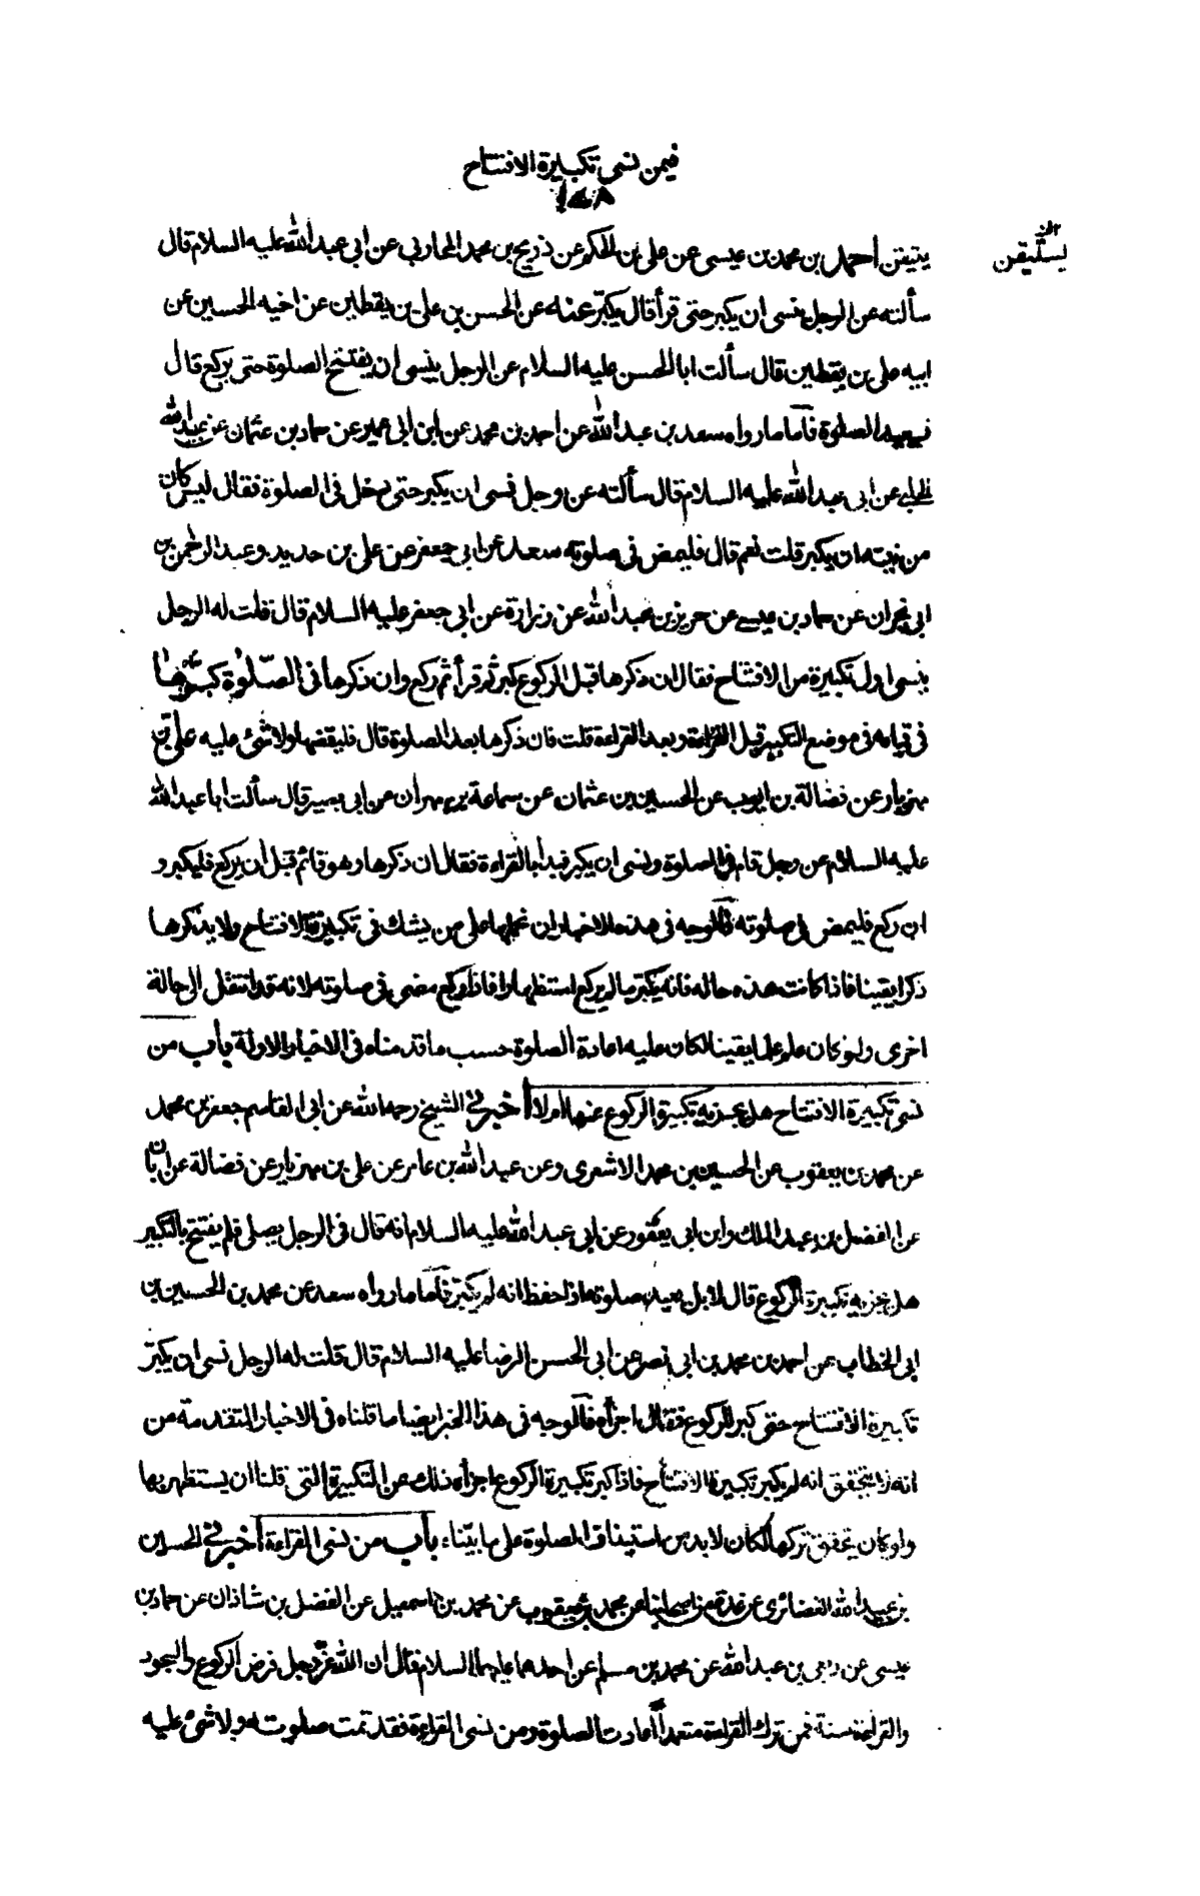 فيمن نسى تكبيرة الافتتاح
١٤٨
يتيقن احمد بن محمد بن عيسى عن على بن الحكم عن ذريح بن محمد المحاربى عن ابى عبد الله عليه السلام قال
نخ
يستيقن
سألته عن الرجل ينسى ان يكبر حتى قرأ قال يكبّر عنه عن الحسن بن على بن يقطين عن اخيه الحسين عن
ابيه على بن يقطين قال سألت ابا الحسن عليه السلام عن الرجل ينسى ان يفتتح الصلوة حتى يركع قال
يعيد الصلوة فآما ما رواه سعد بن عبد الله عن احمد بن محمد عن ابن ابى عمير عن حماد بن عثمان عن عبيد الله
الحلبى عن ابى عبد الله عليه السلام قال سألته عن رجل نسى ان يكبر حتى دخل فى الصلوة فقال ليس كان
من نيته ان يكبر قلت نعم قال فليمض فى صلوته سعد عن ابى جعفر عن على بن حديد وعبد الرحمن بن
ابى نجران عن حماد بن عيسى عن حريز بن عبد الله عن زرارة عن ابى جعفر عليه السلام قال قلت له الرجل
ينسى اول تكبيرة من الافتتاح فقال ان ذكرها قبل الركوع كبر ثم قرأ ثم ركع وان ذكرها فى الصّلوة كبّرها
فى قيامه فى موضع التكبير قبل القراءة وبعد القراءة قلت فان ذكرها بعد الصلوة قال فليقضها ولا شئ عليه على بن
مهزيار عن فضالة بن ايوب عن الحسين بن عثمان عن سماعة بن مهران عن ابى بصير قال سألت ابا عبد الله
عليه السلام عن رجل قام فى الصلوة ونسى ان يكبر فبدأ بالقراءة فقال ان ذكرها وهو قائم قبل ان يركع فليكبر و
ان ركع فليمض فى صلوته فالوجه فى هذه الاخبار ان نحملها على من يشك فى تكبيرة الافتتاح ولا يذكرها
ذكرا يقينا فاذا كانت هذه حاله فانه يكبر ما لم يركع استظهارا فاذا ركع مضى فى صلوته لانه قد انتقل الى حالة
اخرى ولو كان علم علما يقينا لكان عليه اعادة الصلوة حسب ما قدمناه فى الاخبار الاولة باب من
نسى تكبيرة الافتتاح هل يجزيه تكبيرة الركوع عنها ام لا اخبرنى الشيخ رحمه الله عن ابى القاسم جعفر بن محمد
عن محمد بن يعقوب عن الحسين بن محمد الاشعرى وعن عبد الله بن عامر عن على بن مهزيار عن فضالة عن ابان
عن الفضل بن عبد الملك وابن ابى يعفور عن ابى عبد الله عليه السلام انه قال فى الرجل يصلى فلم يفتتح بالتكبير
هل يجزيه تكبيرة الركوع قال لا بل يعيد صلوته اذا حفظ انه لم يكبّر فآما ما رواه سعد عن محمد بن الحسين بن
ابى الخطاب عن احمد بن محمد بن ابى نصر عن ابى الحسن الرضا عليه السلام قال قلت له الرجل نسى ان يكبّر
تكبيرة الافتتاح حتى كبر للركوع فقال اجزأه فالوجه فى هذا الخبر ايضا ما قلناه فى الاخبار المتقدمة من
انه لم يتحقق انه لم يكبر تكبيرة الافتتاح فاذا كبر تكبيرة الركوع اجزأه ذلك عن التكبيرة التى قلنا ان يستظهر بها
ولو كان تحقق تركها لكان لا بد من استيناف الصلوة على ما بيّناه باب من نسى القراءة اخبرنى الحسين
بن عبيد الله الغضائرى عن عدة من اصحابنا عن محمد بن يعقوب عن محمد بن اسمعيل عن الفضل بن شاذان عن حماد بن
عيسى عن ربعى بن عبد الله عن محمد بن مسلم عن احدهما عليهما السلام قال ان الله عزّ وجل فرض الركوع والسجود
والقراءة سنة فمن ترك القراءة متعمدا اعاد الصلوة ومن نسى القراءة فقد تمت صلوته ولا شئ عليه